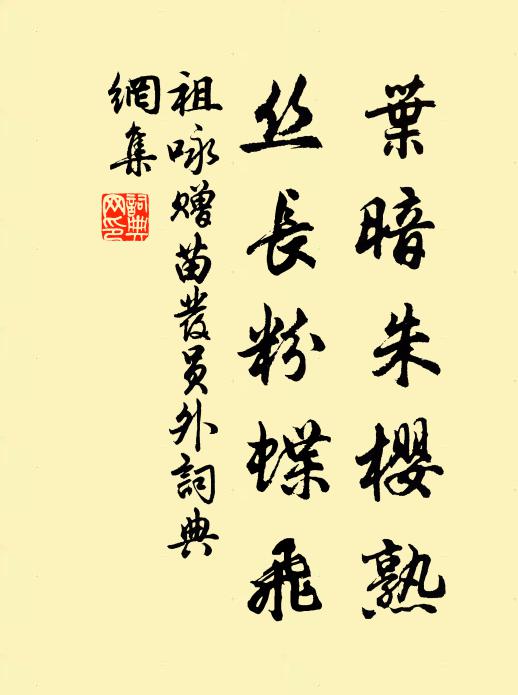 葉暗朱櫻熟
丝長粉蝶飛
祖咏贈苗發員外詞典
網集
詞典
网印